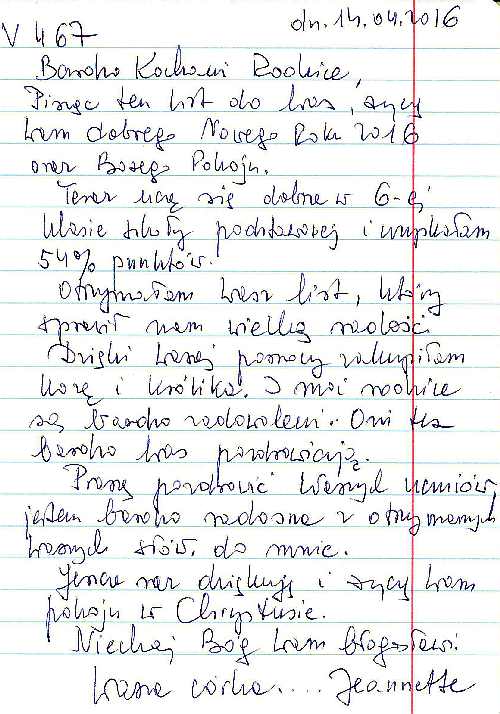 V 467
dn. 14.04.2016
Bardzo Kochani Rodzice,
Pisząc ten list do Was, życzę
Wam dobrego Nowego Roku 2016
oraz Bożego Pokoju.
Teraz uczę się dobrze w 6-ej
klasie szkoły podstawowej i uzyskałam
54% punktów.
Otrzymałam Wasz list, który
sprawił nam wielką radość.
Dzięki Waszej pomocy zakupiłam
kozę i królika. I moi rodzice
są bardzo zadowoleni. Oni też
bardzo Was pozdrawiają.
Proszę pozdrowić Waszych uczniów
jestem bardzo radosna z otrzymanych
Waszych słów do mnie.
Jeszcze raz dziękuję i życzę Wam
pokoju w Chrystusie.
Niechaj Bóg Wam błogosławi.
Wasza córka.... Jeannette